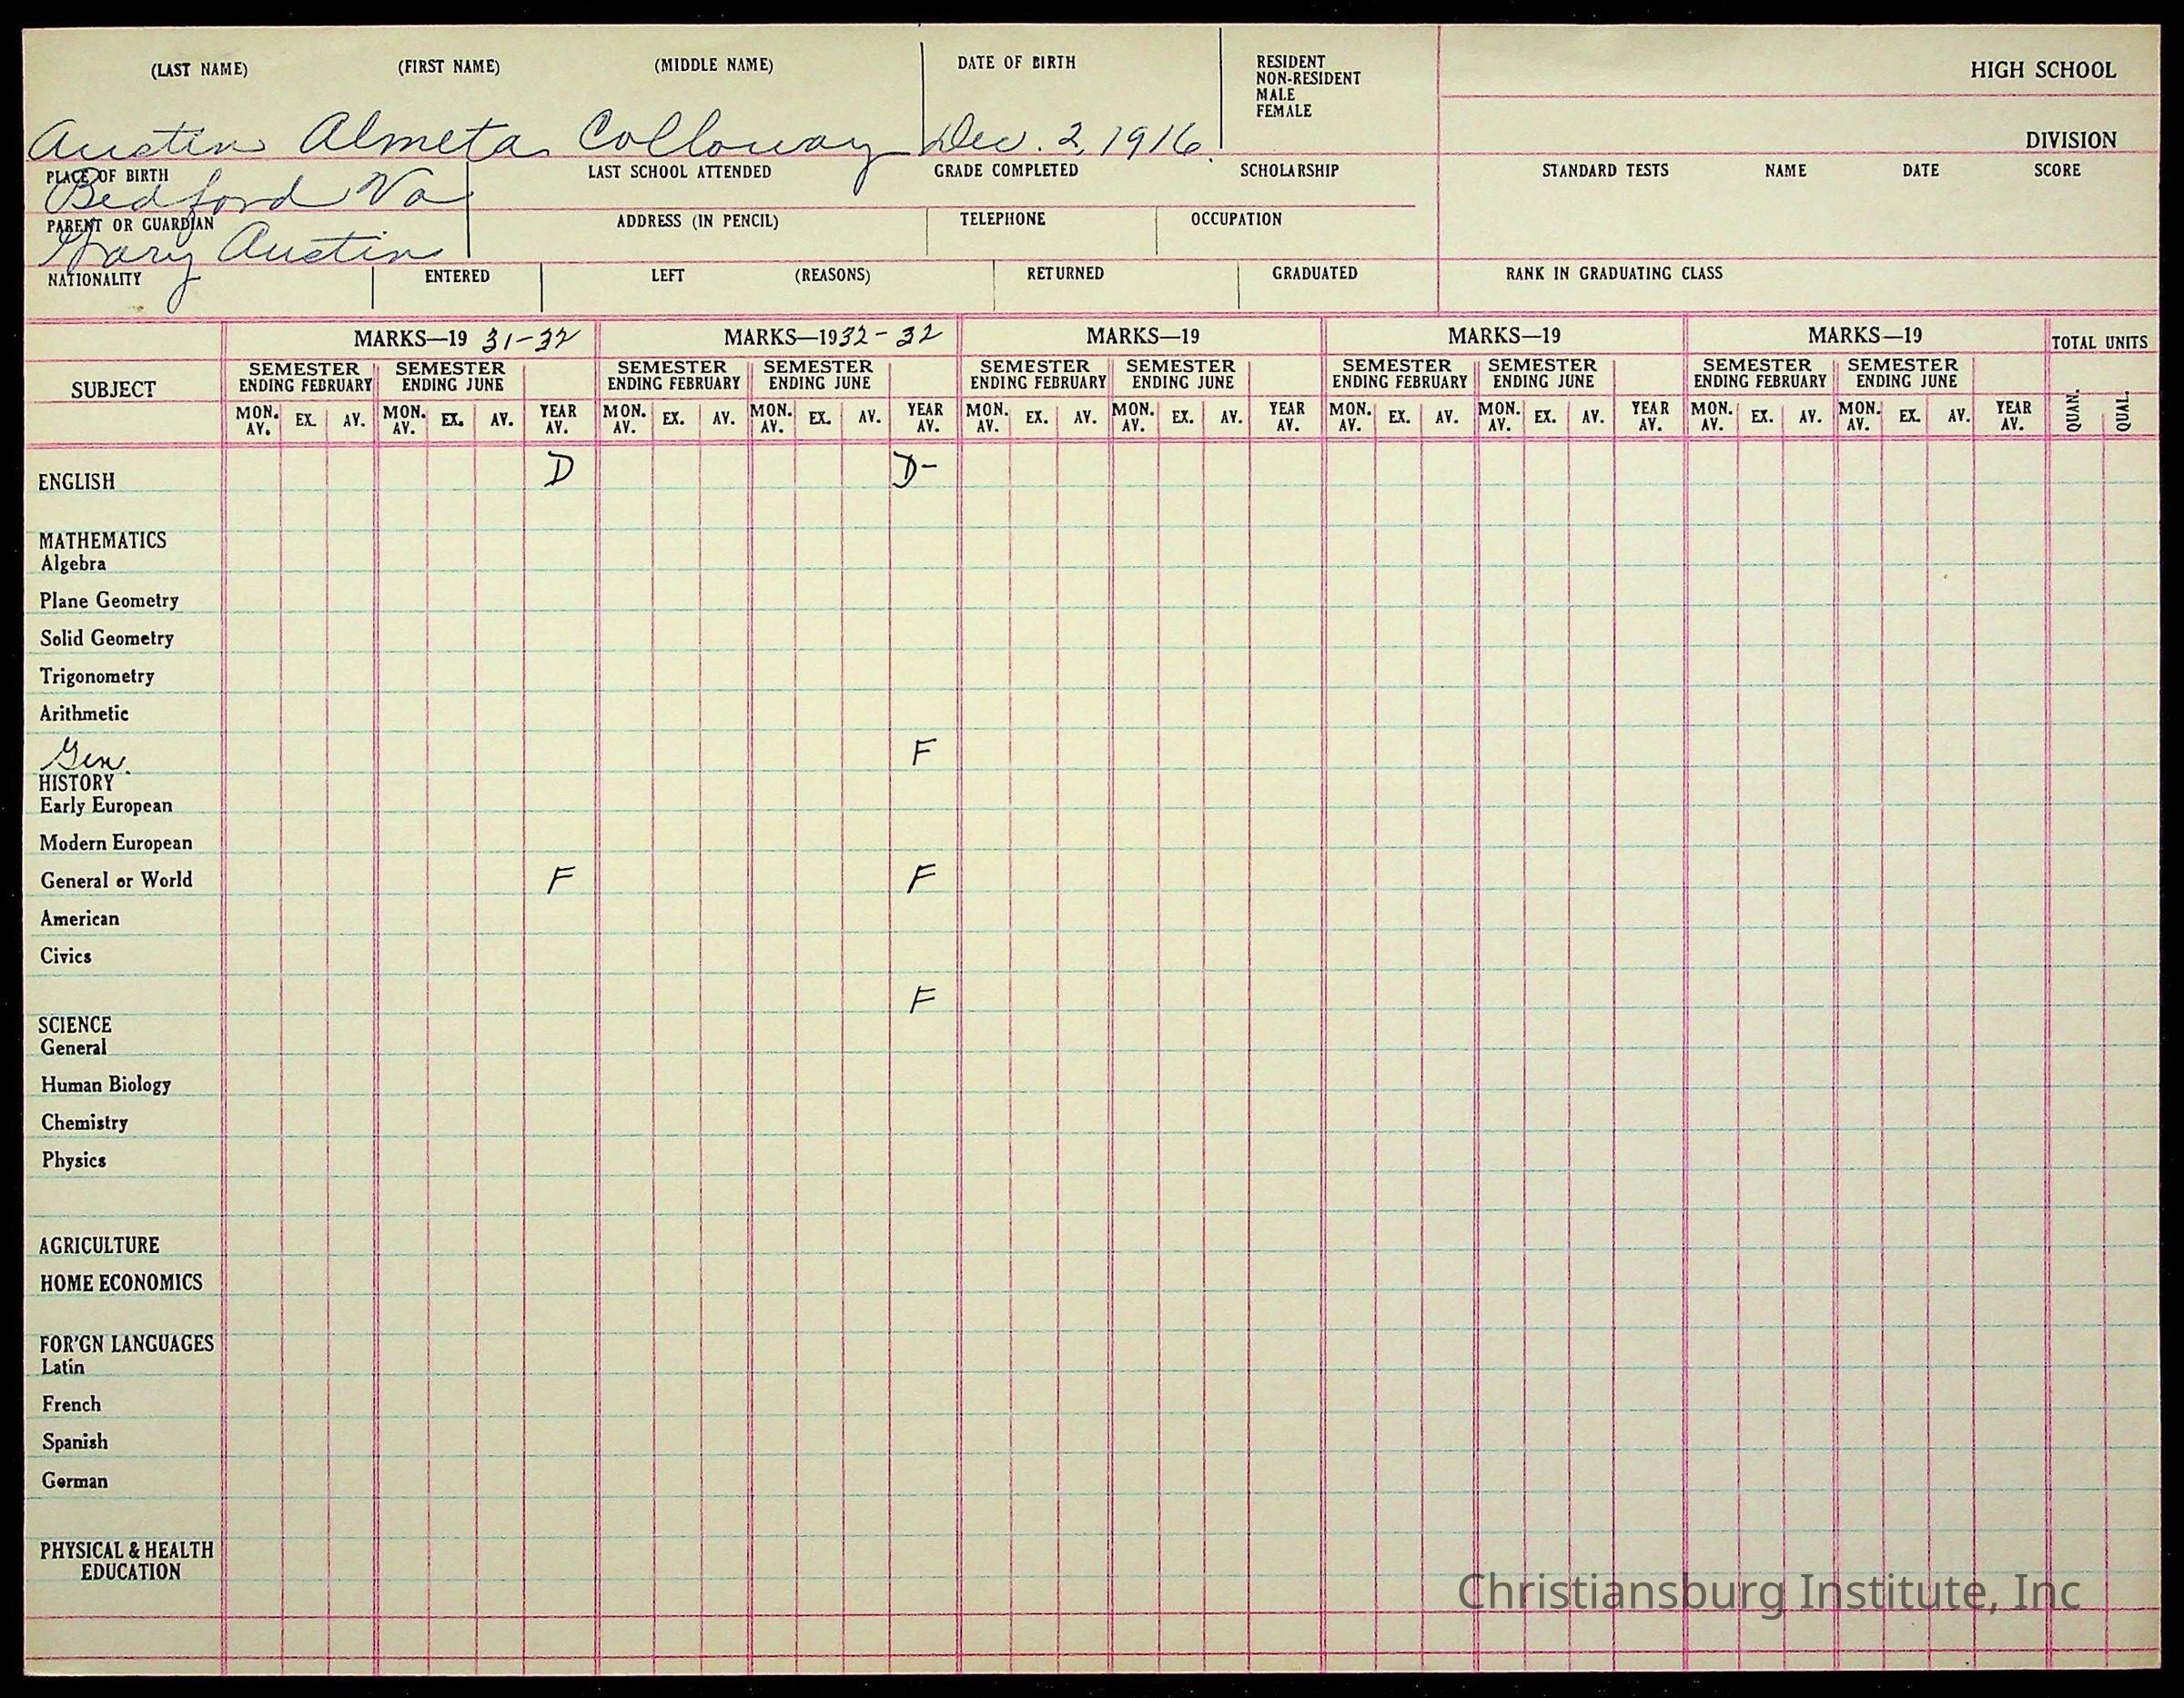 (LAST NAME) (FIRST NAME) (MIDDLE NAME) DATE OF BIRTH
RESIDENT
NON-RESIDENT
MALE
FEMALE
HIGH SCHOOL
Austin Almeta Colloway Dec. 2, 1916.
DIVISION
PLACE OF BIRTH LAST SCHOOL ATTENDED GRADE COMPLETED SCHOLARSHIP STANDARD TESTS NAME DATE SCORE
Bedford Va
PARENT OR GUARDIAN ADDRESS (IN PENCIL) TELEPHONE OCCUPATION
Gary Austin
NATIONALITY ENTERED LEFT (REASONS) RETURNED GRADUATED RANK IN GRADUATING CLASS
MARKS—19 31-32 MARKS—19 32-32 MARKS—19 MARKS—19 MARKS—19 TOTAL UNITS
SUBJECT
SEMESTER SEMESTER SEMESTER SEMESTER SEMESTER SEMESTER SEMESTER SEMESTER SEMESTER SEMESTER
ENDING FEBRUARY ENDING JUNE ENDING FEBRUARY ENDING JUNE ENDING FEBRUARY ENDING JUNE ENDING FEBRUARY ENDING JUNE ENDING FEBRUARY ENDING JUNE
MON. AV. EX. AV. MON. AV. EX. AV. YEAR AV. MON. AV. EX. AV. MON. AV. EX. AV. YEAR AV. MON. AV. EX. AV. MON. AV. EX. AV. YEAR AV. MON. AV. EX. AV. MON. AV. EX. AV. YEAR AV. MON. AV. EX. AV. MON. AV. EX. AV. YEAR AV. QUAN. QUAL.
ENGLISH D D-
MATHEMATICS
Algebra
Plane Geometry
Solid Geometry
Trigonometry
Arithmetic
Gen. F
HISTORY
Early European
Modern European
General or World F F
American
Civics
F
SCIENCE
General
Human Biology
Chemistry
Physics
AGRICULTURE
HOME ECONOMICS
FOR'GN LANGUAGES
Latin
French
Spanish
German
PHYSICAL & HEALTH
EDUCATION
Christiansburg Institute, Inc